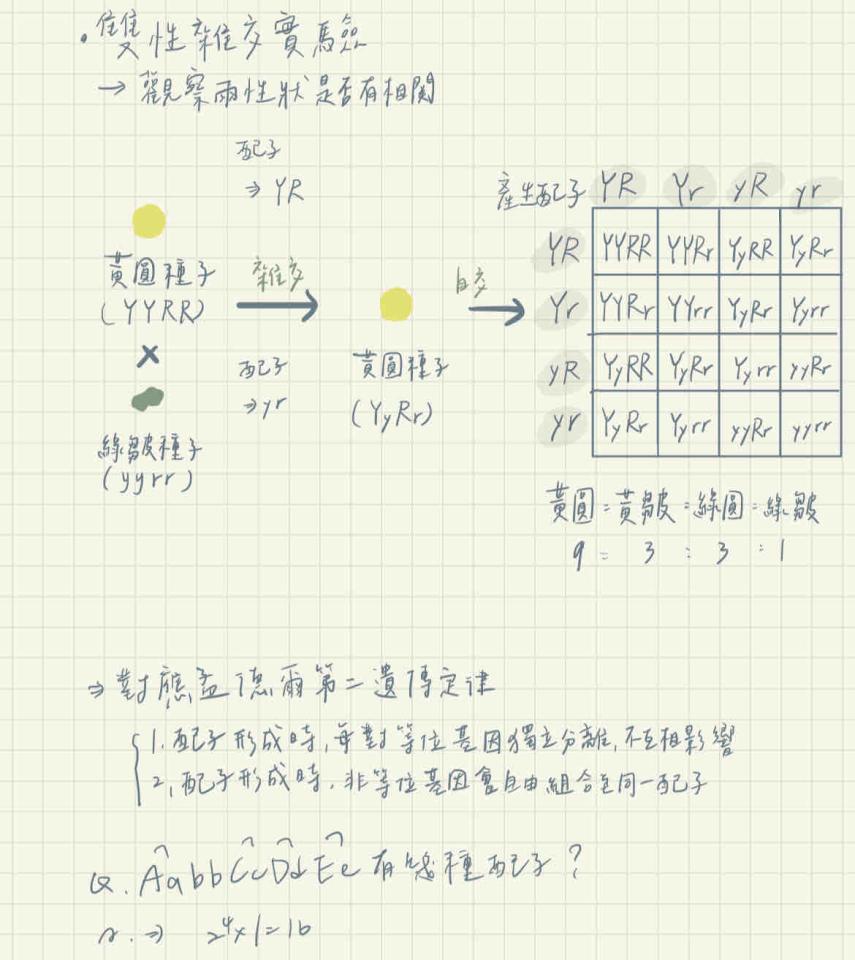 • 雙性雜交實驗
→ 觀察兩性狀是否有相關
配子
⇒ YR
黃圓種子
(YYRR)
×
綠皺種子
(yyrr)
雜交
配子
⇒ yr
黃圓種子
(YyRr)
自交
產生配子 YR Yr yR yr
YR YYRR YYRr YyRR YyRr
Yr YYRr YYrr YyRr Yyrr
yR YyRR YyRr Yyrr yyRr
yr YyRr Yyrr yyRr yyrr
黃圓:黃皺:綠圓:綠皺
9 : 3 : 3 : 1
⇒ 對應孟德爾第二遺傳定律
1. 配子形成時,每對等位基因獨立分離,不互相影響
2. 配子形成時,非等位基因會自由組合至同一配子
Q. AabbCcDdEe 有幾種配子?
⇒ 2⁴×1=16